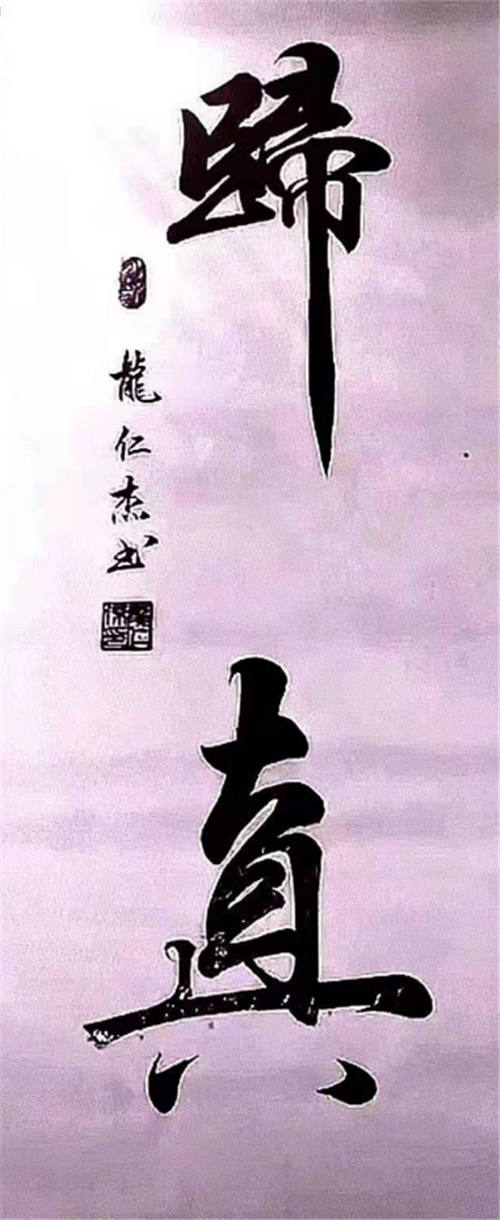 歸真
龍仁杰书